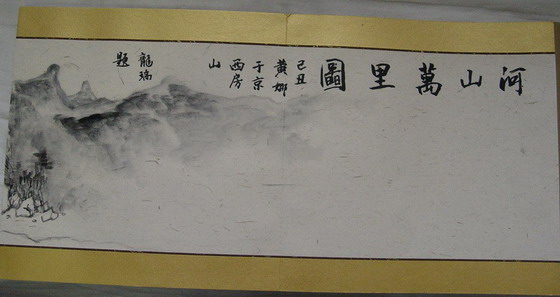 河山萬里圖
己丑
黄娜
于京
西房
山
龍瑞
題